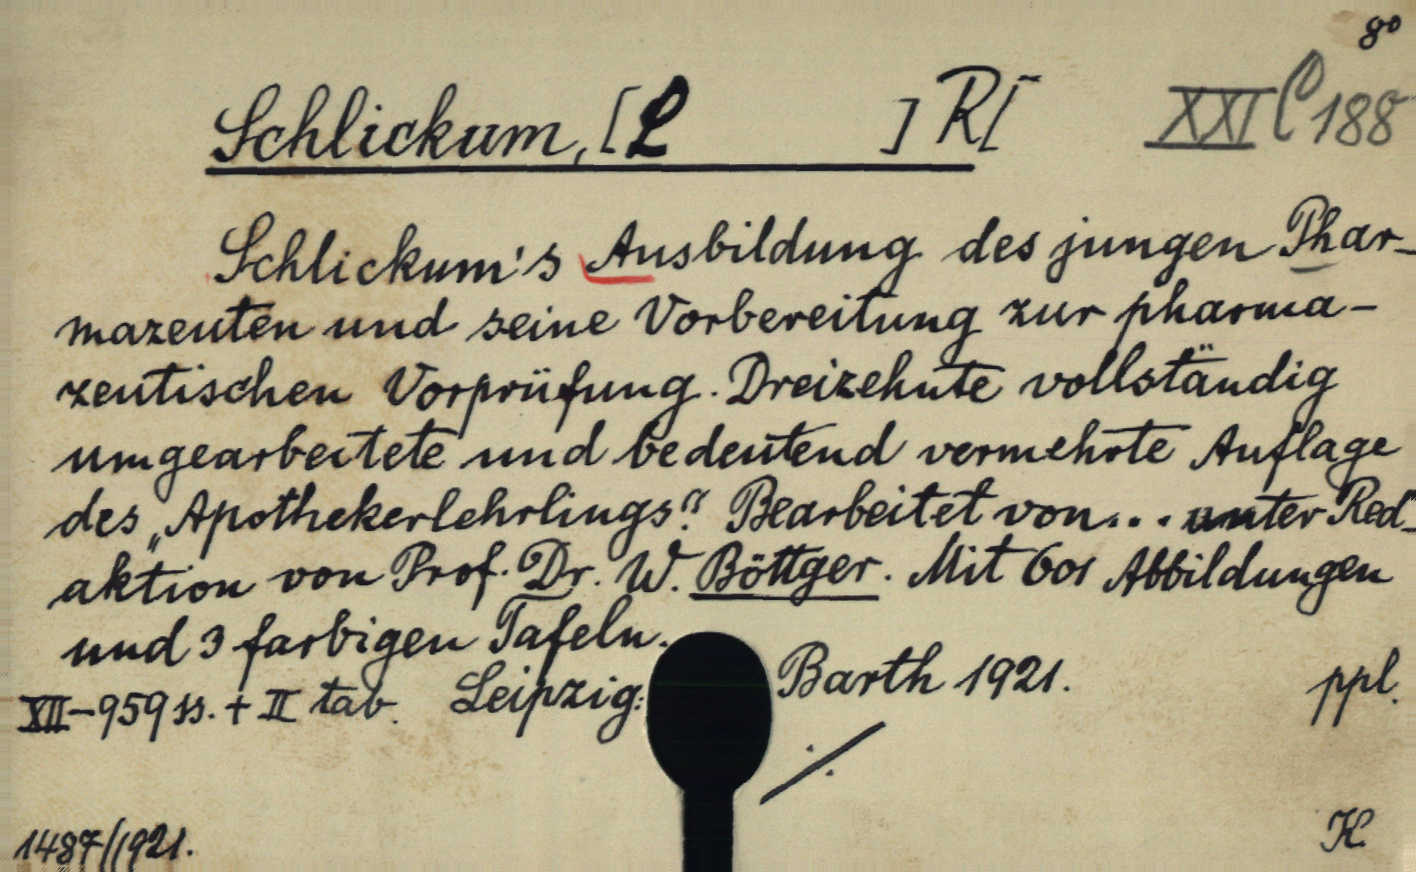 8°
Schlickum, [L ] R[
XXI C 188
Schlickum's Ausbildung des jungen Phar-
mazeuten und seine Vorbereitung zur pharma-
zeutischen Vorprüfung. Dreizehnte vollständig
umgearbeitete und bedeutend vermehrte Auflage
des „Apothekerlehrlings". Bearbeitet von... unter Red-
aktion von Prof. Dr. W. Böttger. Mit 601 Abbildungen
und 3 farbigen Tafeln.
XII-959 ss. + II tab. Leipzig: Barth 1921. ppl.
1487/1921.
K.